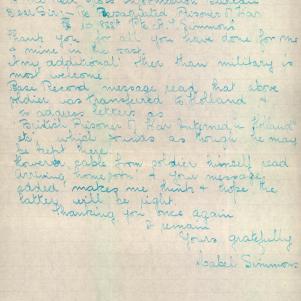 Dear Sir - Re Repatriated Prisoner of War
Simmons
Thank you for all you have done for me
& mine in the past.
Any additional other than military is
most welcome.
Base Record message read that above
soldier was transferred to Holland &
to address letters as
British Prisoner of War Interned in Holland
which sounds as though he may
be kept there.
However cable from soldier himself read
"arriving home soon" & your message
added makes me think & hope the
latter will be right.
Thanking you once again
I remain
Yours gratefully
Isabel Simmons